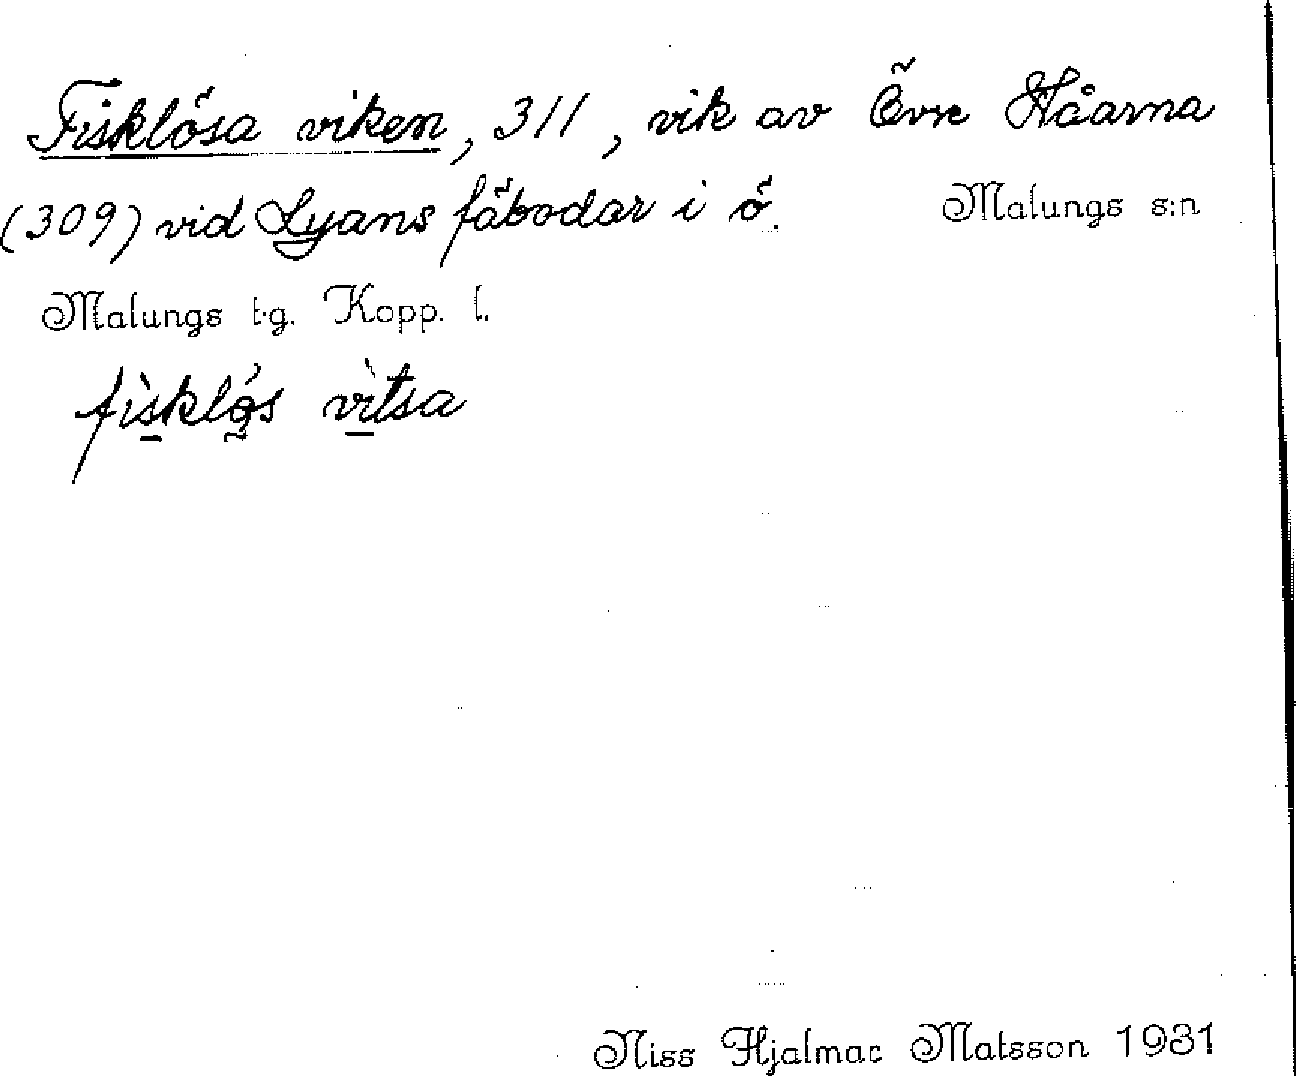 Fisklösa viken, 311, vik av Övre Håarna
(309) vid Lyans fäbodar i ö. Malungs s:n
Malungs t.g. Kopp. l.
fisklǿs vitsa
Niss Hjalmar Matsson 1931